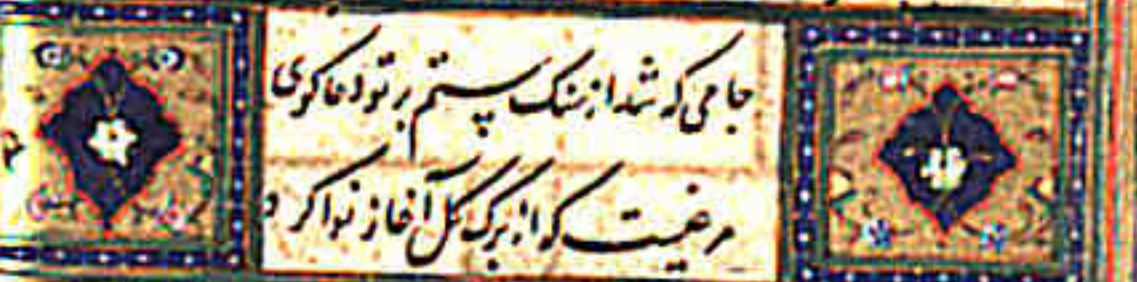 جامی که شد از سنک ستم بر تو دعاکوی
مرغیست که از برک کل آغاز نوا کرد